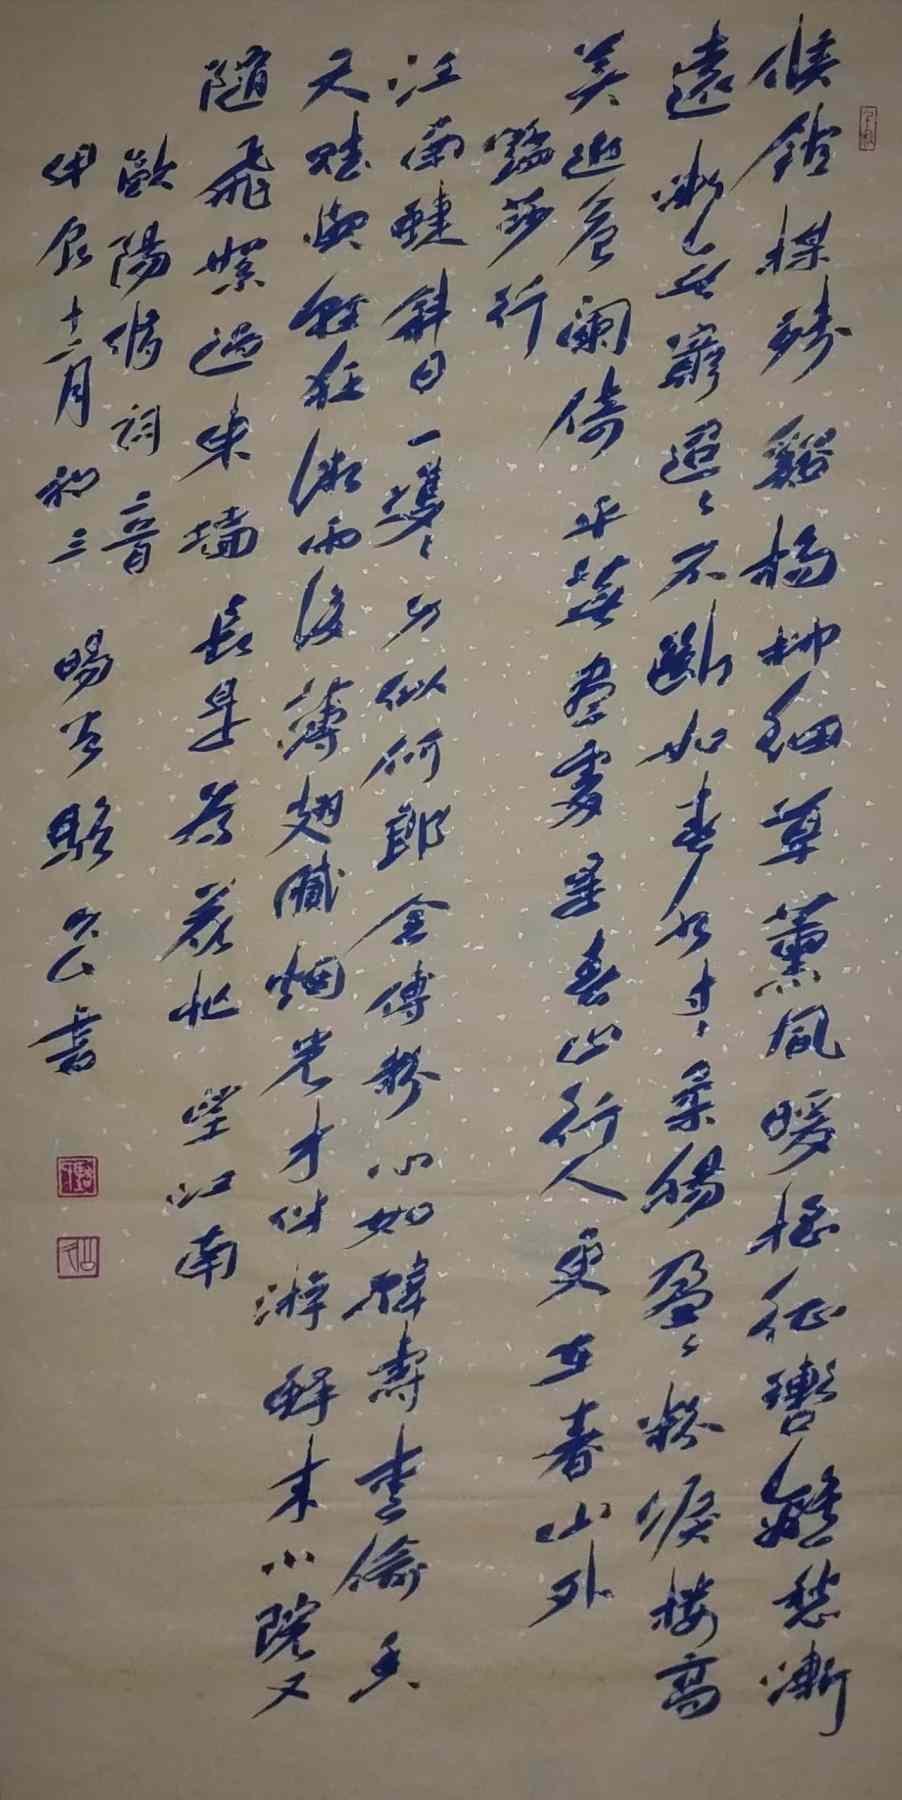 候館梅殘谿橋柳細草薰風暖搖征轡離愁漸
遠漸無窮迢〻不斷如春水寸〻柔腸盈〻粉淚樓高
莫近危闌倚平蕪盡處是春山行人更在春山外
踏莎行
江南蝶斜日一雙〻身似何郎全傅粉心如韓壽愛偷香
天賦與輕狂微雨後薄翅膩烟光才伴游蜂來小院又
隨飛絮過東墻長是為花忙 望江南
歐陽脩詞二首
甲辰十二月初三 暘谷駱公書